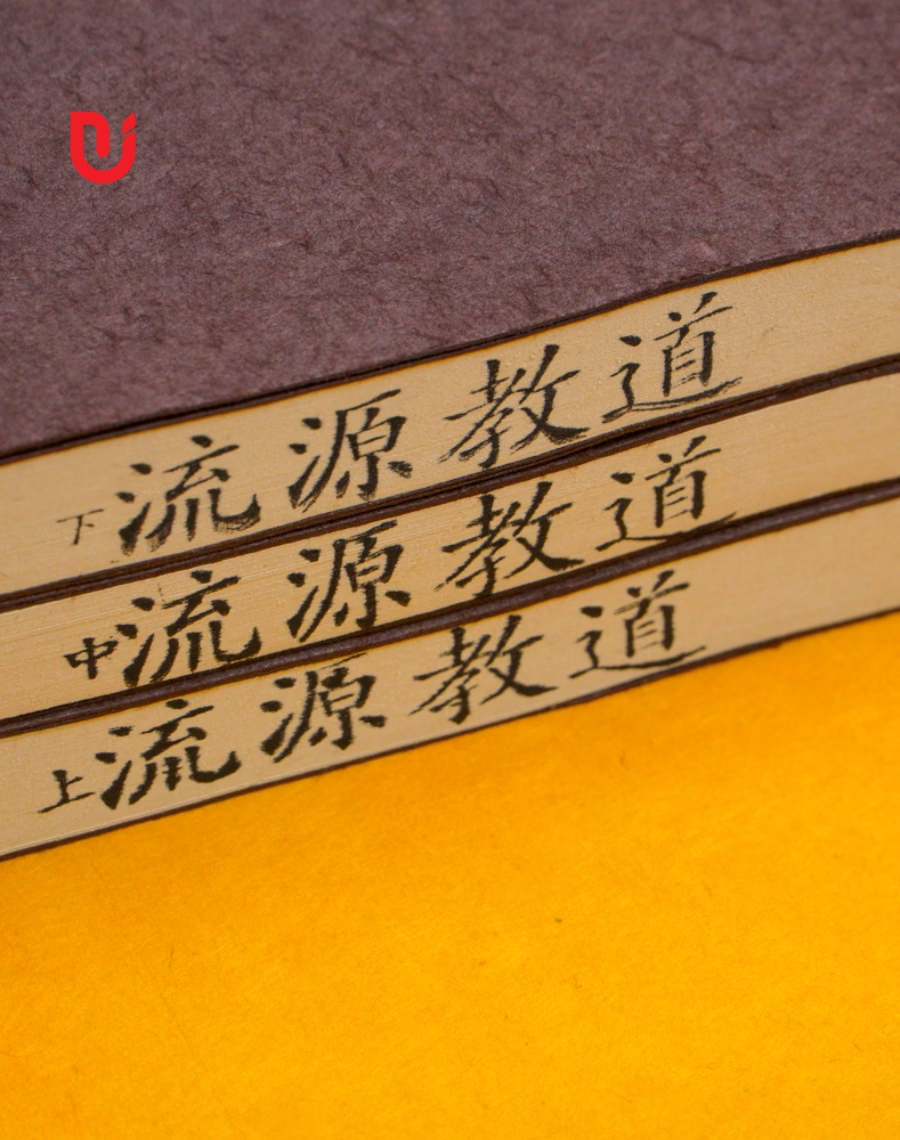 道教源流下
道教源流中
道教源流上